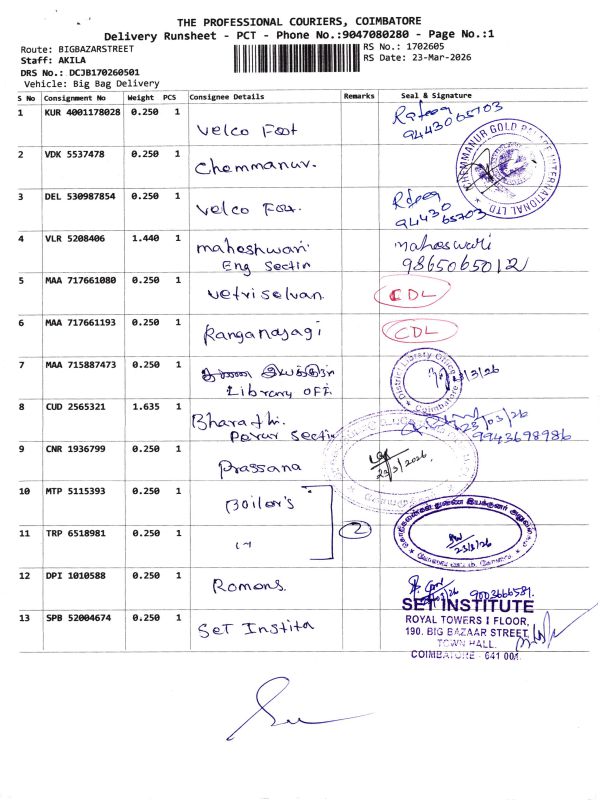 THE PROFESSIONAL COURIERS, COIMBATORE
Delivery Runsheet - PCT - Phone No.:9047080280 - Page No.:1
Route: BIGBAZARSTREET
Staff: AKILA
DRS No.: DCJB170260501
Vehicle: Big Bag Delivery
RS No.: 1702605
RS Date: 23-Mar-2026
S No Consignment No Weight PCS Consignee Details Remarks Seal & Signature
1 KUR 4001178028 0.250 1 Velco Foot Rafeeq 9443065703
2 VDK 5537478 0.250 1 Chemmanur. CHEMMANUR GOLD PALACE INTERNATIONAL LTD
3 DEL 530987854 0.250 1 Velco Foot. 9443065703
4 VLR 5208406 1.440 1 maheshwari Eng Sectin maheswari 9865065012
5 MAA 717661080 0.250 1 Vetriselvan CDL
6 MAA 717661193 0.250 1 Ranganayagi CDL
7 MAA 715887473 0.250 1 Library OFF. District Library Office Coimbatore
8 CUD 2565321 1.635 1 Bharathi. Perur Sectin 23/03/26 9943698986
9 CNR 1936799 0.250 1 Prassana 23/3/2026
10 MTP 5115393 0.250 1 Boiler's
11 TRP 6518981 0.250 1 〃 2 23/3/26
12 DPI 1010588 0.250 1 Romons. 9003666581
13 SPB 52004674 0.250 1 SeT Institu
SET INSTITUTE
ROYAL TOWERS I FLOOR,
190. BIG BAZAAR STREET,
TOWN HALL.
COIMBATORE - 641 001.